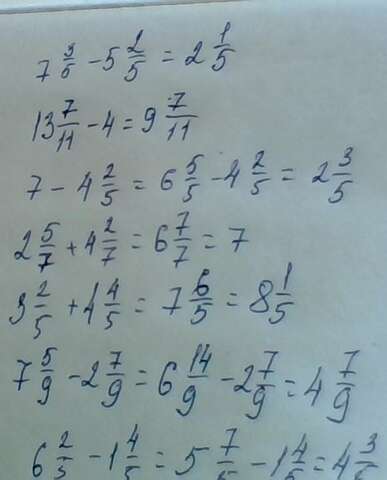 7 3/5 - 5 2/5 = 2 1/5
13 7/11 - 4 = 9 7/11
7 - 4 2/5 = 6 5/5 - 4 2/5 = 2 3/5
2 5/7 + 4 2/7 = 6 7/7 = 7
3 2/5 + 4 4/5 = 7 6/5 = 8 1/5
7 5/9 - 2 7/9 = 6 14/9 - 2 7/9 = 4 7/9
6 2/5 - 1 4/5 = 5 7/5 - 1 4/5 = 4 3/5